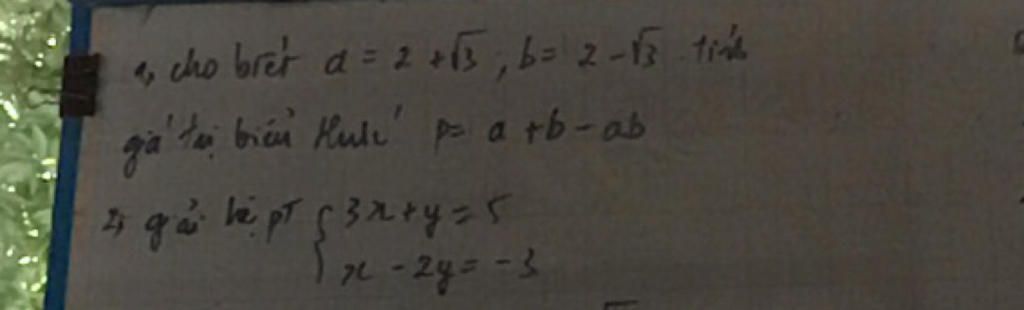 1, cho biết a = 2 + √3 , b = 2 - √3 tính
giá trị biểu thức P = a + b - ab
2, giải hệ pt { 3x + y = 5
x - 2y = -3